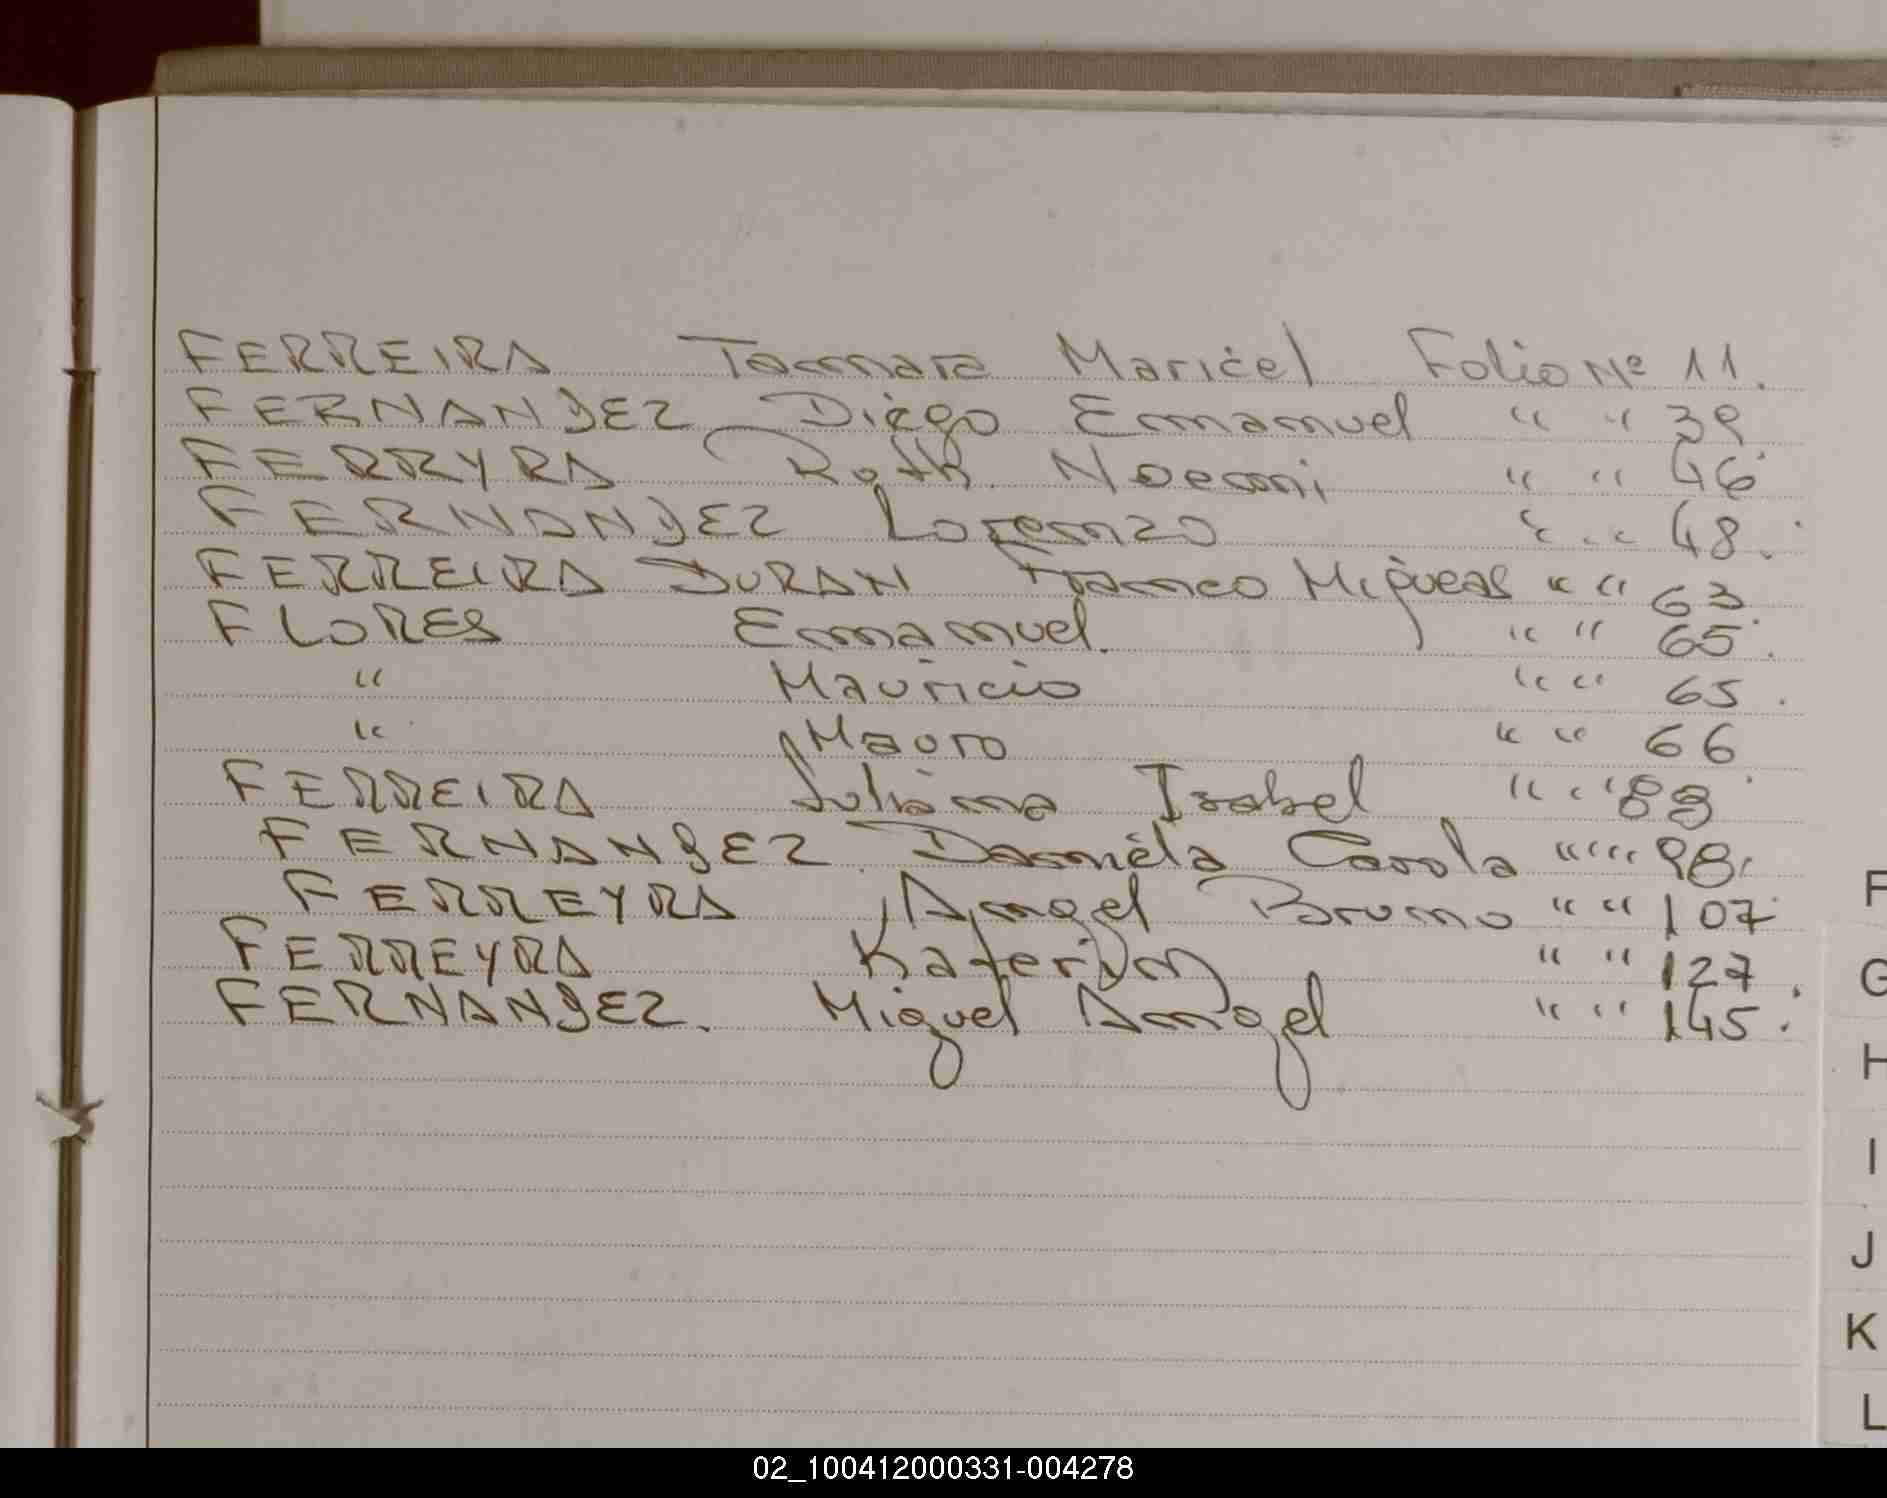 FERREIRA Tamara Maricel Folio Nº 11.
FERNANDEZ Diego Emanuel " " 39
FERRYRA Roth Noemi " " 46
FERNANDEZ Lorenzo " " 48.
FERREIRA DURAN Franco Miqueas " " 63.
FLORES Emanuel. " " 65.
" Mauricio " " 65.
" Mauro " " 66
FERREIRA Juliana Isabel " "
FERNANDEZ Daniela Carola " " 98.
FERREYRA Angel Bruno " " 107
FERREYRA Katerin " " 127.
FERNANDEZ. Miguel Angel " " 145.
F
G
H
I
J
K
L
02_100412000331-004278